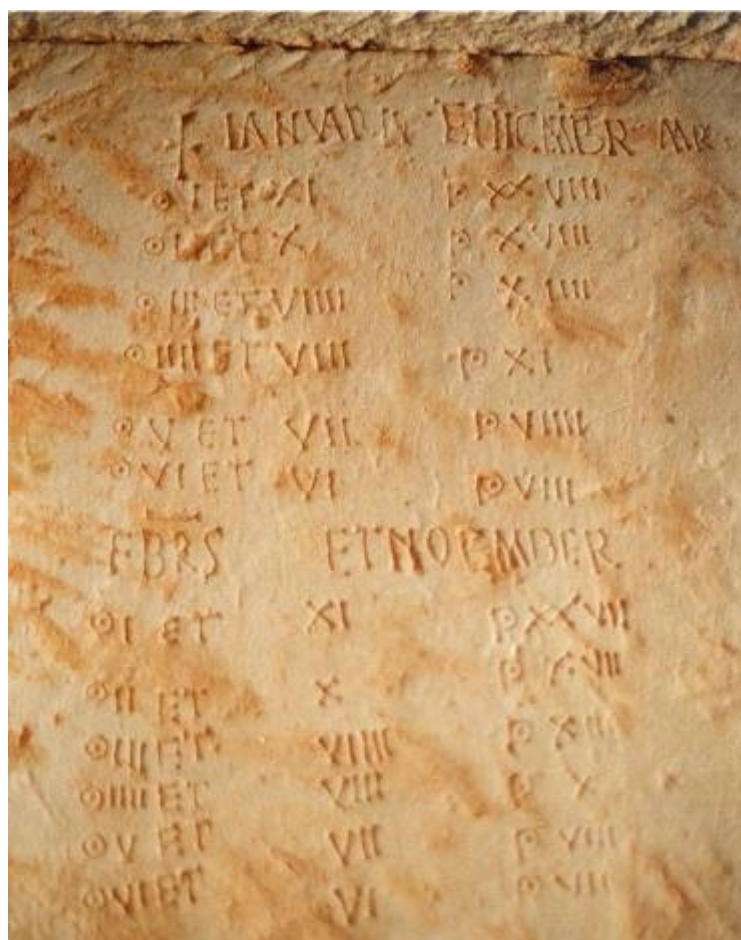 IANVAR ET DECMBER MR
⊙ I ET XI P XXVIII
⊙ II ET X P XVIII
⊙ III ET VIIII P XIIII
⊙ IIII ET VIII P XI
⊙ V ET VII P VIIII
⊙ VI ET VI P VIII
FBRS ET NOEMBER
⊙ I ET XI P XXVII
⊙ II ET X P XVII
⊙ III ET VIIII P XIII
⊙ IIII ET VIII P X
⊙ V ET VII P VIII
⊙ VI ET VI P VII